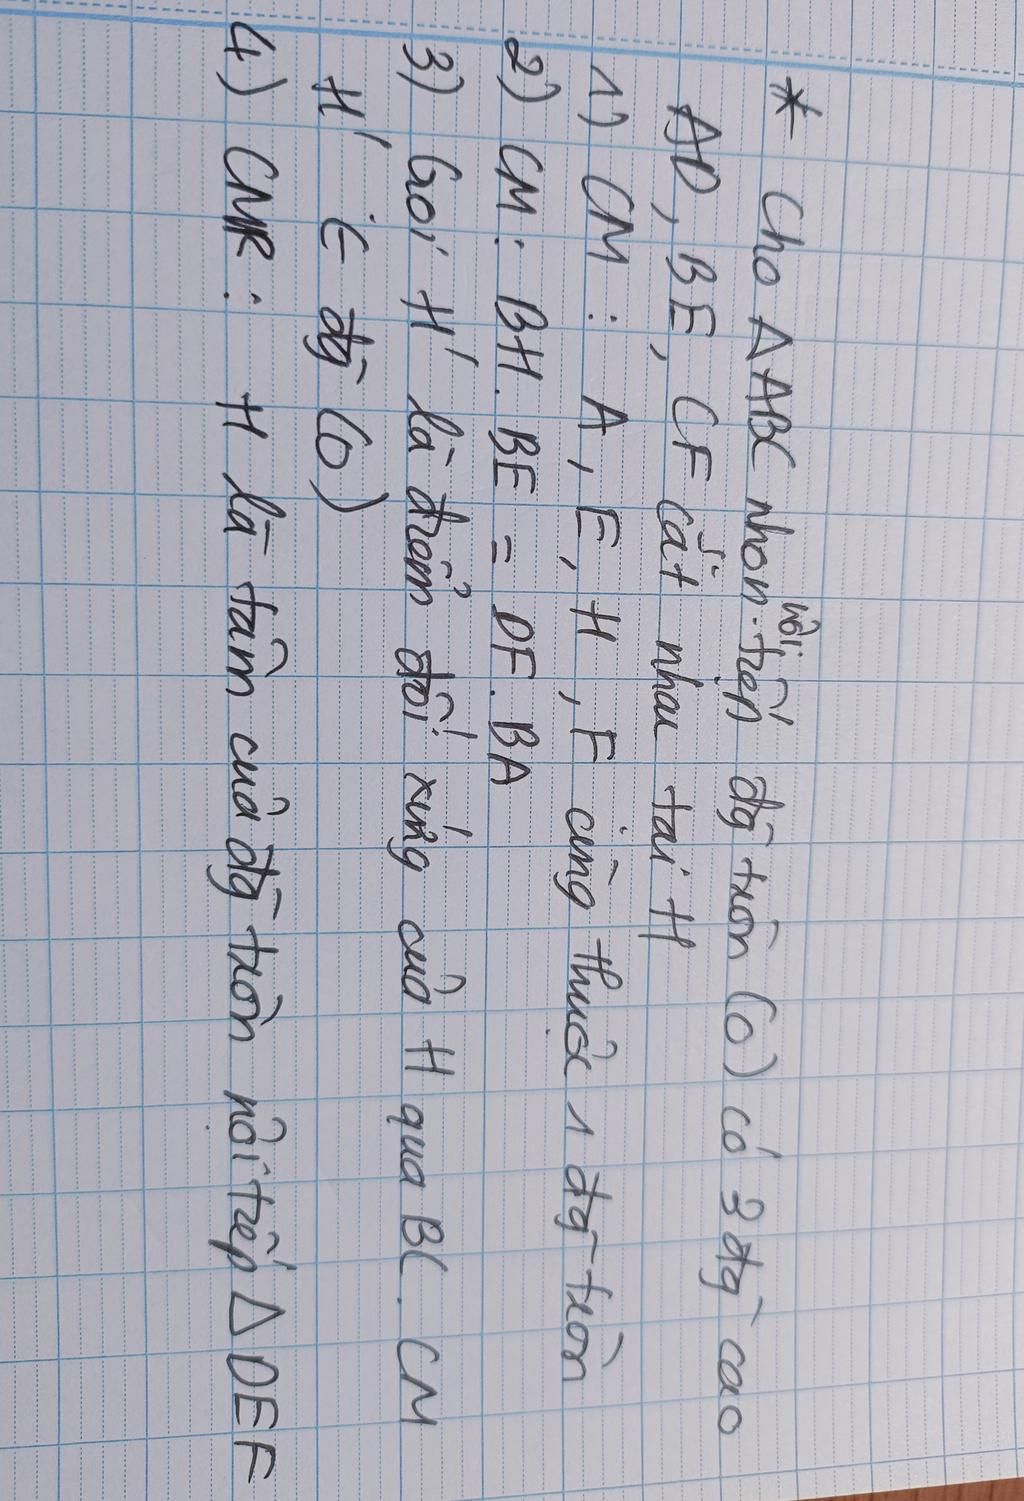 * Cho Δ ABC nhọn nội tiếp đg tròn (O) có 3 đg cao
AD, BE, CF cắt nhau tại H
1) CM : A, E, H, F cùng thuộc 1 đg tròn
2) CM : BH. BE = DF. BA
3) Gọi H' là điểm đối xứng của H qua BC. CM
H' ∈ đg (O)
4) CMR : H là tâm của đg tròn nội tiếp Δ DEF